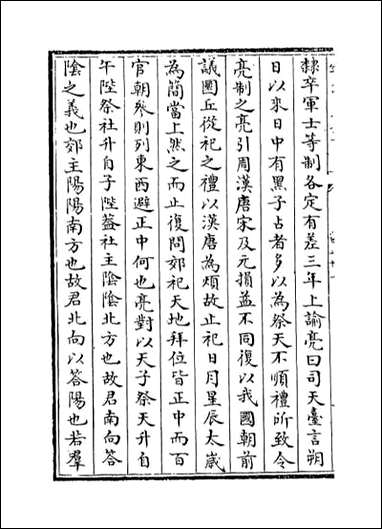 隸卒軍士等制各定有差三年上諭亮曰司天臺言朔
日以來日中有黑子占者多以為祭天不順禮所致令
亮制之亮引周漢唐宋及元損益不同復以我國朝前
議圜丘從祀之禮以漢唐為煩故止祀日月星辰太嵗
為簡當上然之而止復問郊祀天地拜位皆正中而百
官朝叅則列東西避正中何也亮對以天子祭天升自
午陛祭社升自子陛葢社主陰陰北方也故君南向答
陰之義也郊主陽陽南方也故君北向以答陽也若羣